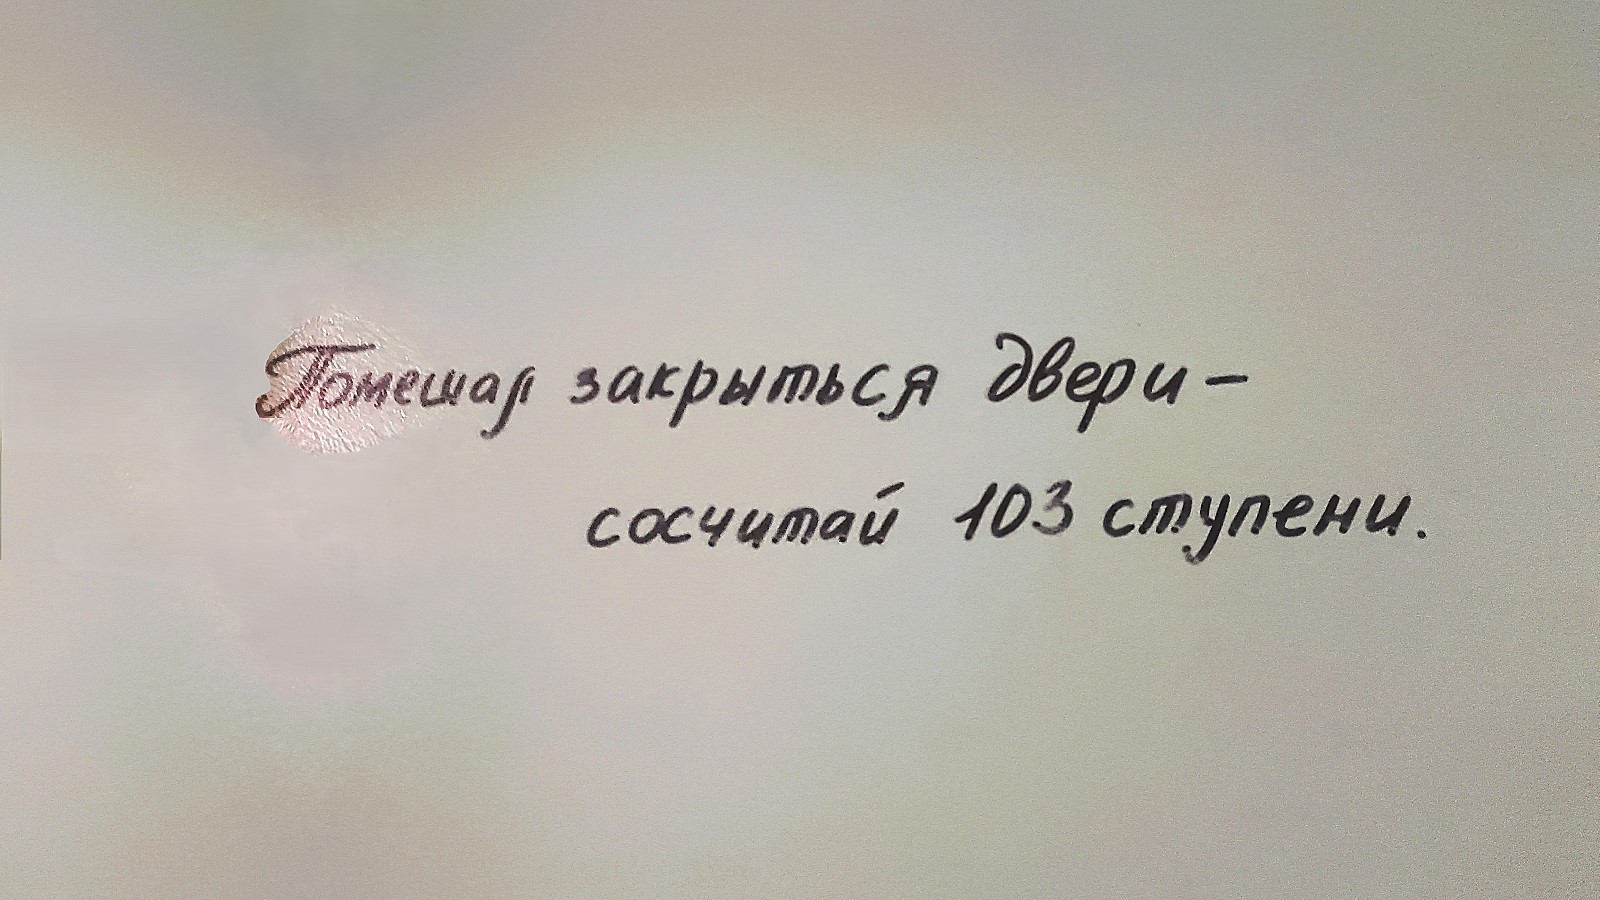 Помешал закрыться двери –
сосчитай 103 ступени.